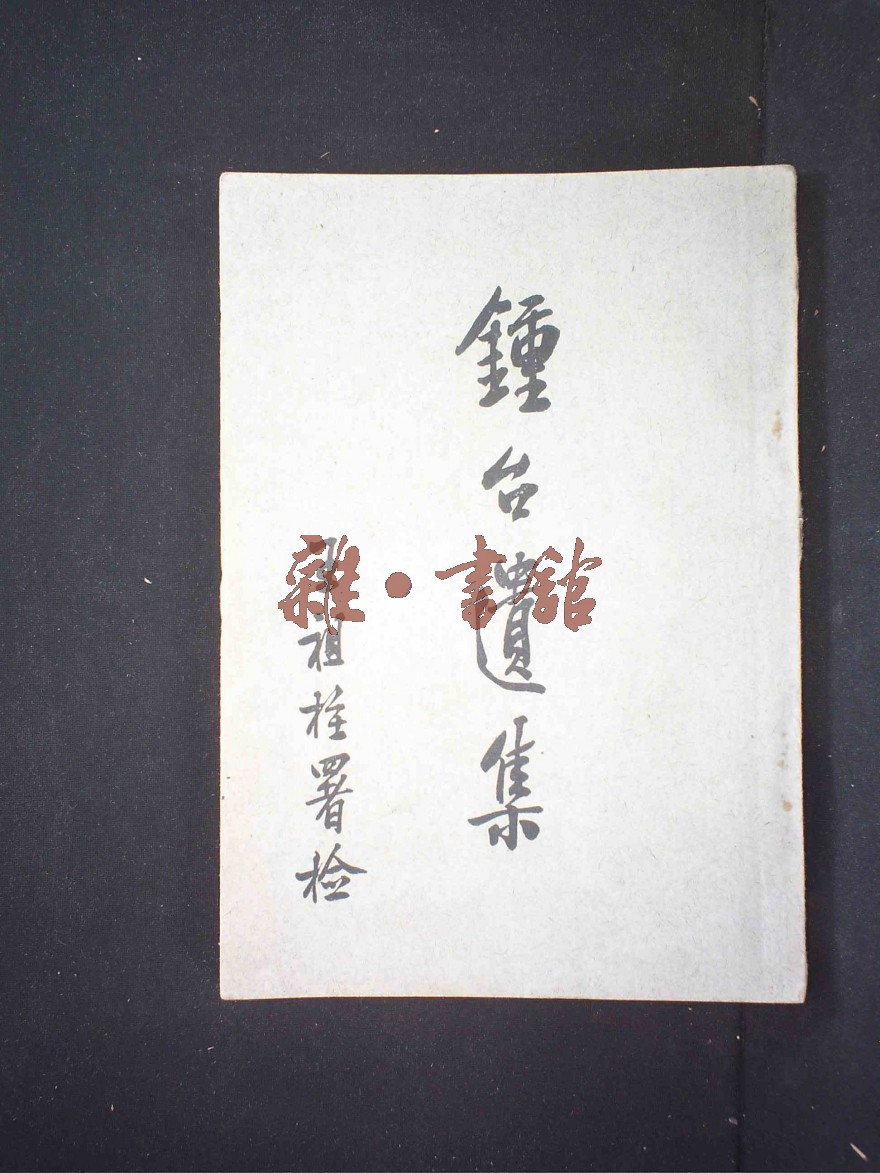 鍾台遺集
祖柱署檢
雜·書館